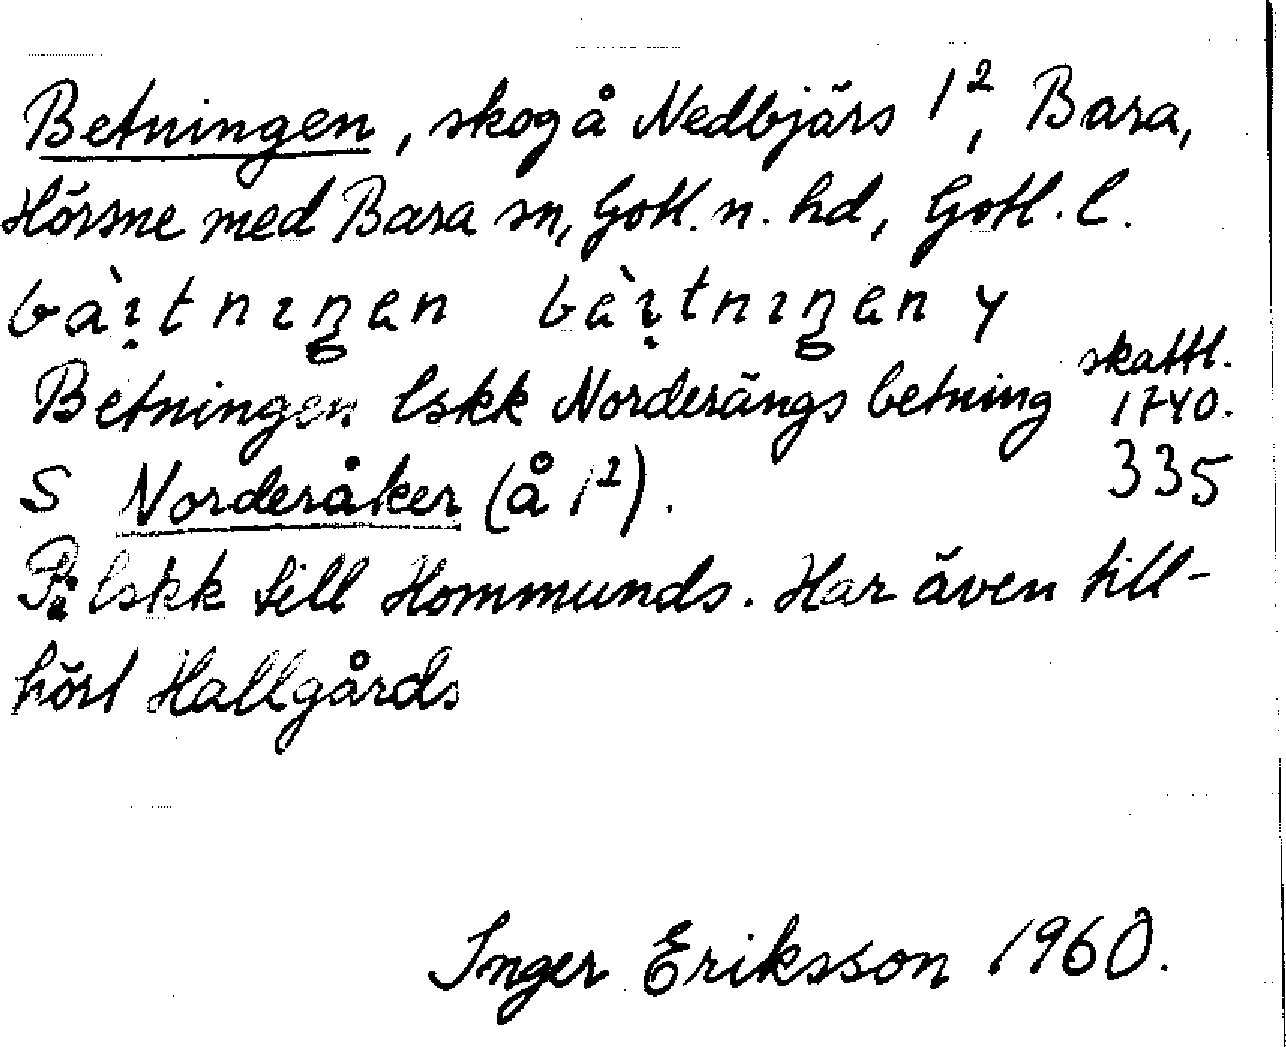 Betningen, skog å Nedbjärs 1², Bara,
Hörsne med Bara sn, Gotl. n. hd, Gotl. l.
bài̯tnıŋen bèi̯tnıŋen y
Betningen lskk Norderängs betning skattl. 1740.
S Norderåker (å 1²). 335
På lskk till Hommunds. Har även till-
hört Hallgårds
Inger Eriksson 1960.